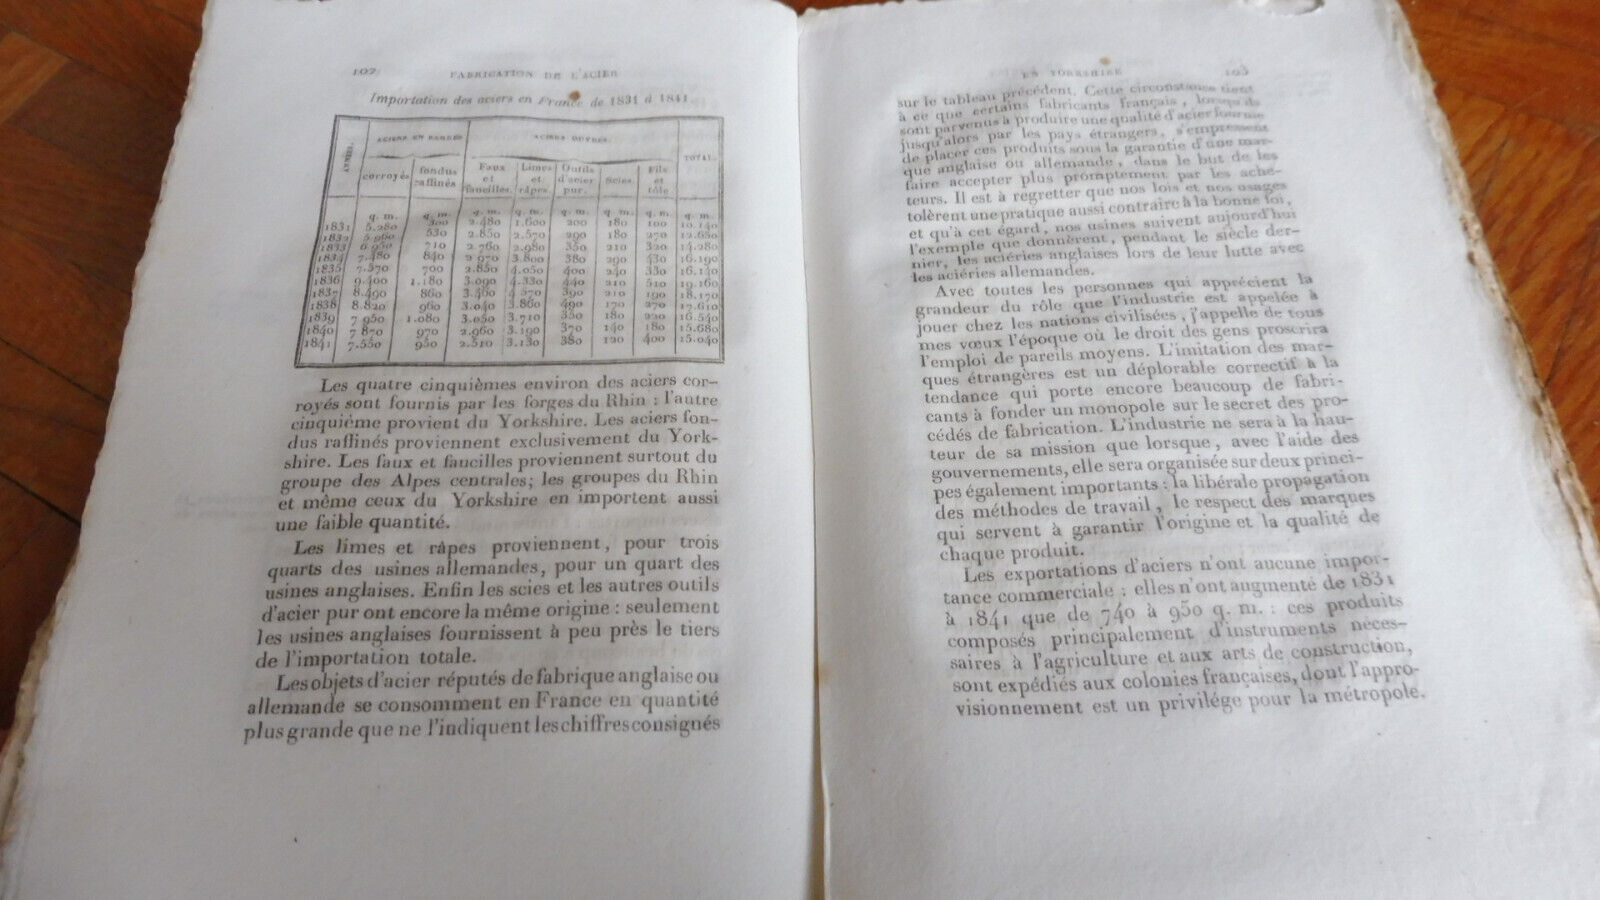 102 FABRICATION DE L'ACIER
Importation des aciers en France de 1831 à 1841.
ANNÉES. ACIERS EN BARRES ACIERS OUVRÉS. TOTAL.
corroyés fondus raffinés Faux et faucilles. Limes et râpes. Outils d'acier pur. Scies. Fils et tôle
q. m. q. m. q. m. q. m. q. m. q. m. q. m. q. m.
1831 5.280 300 2.480 1.600 200 180 100 10.140
1832 5.960 530 2.850 2.570 290 180 270 12.680
1833 6.950 710 2.760 2.980 350 210 320 14.280
1834 7.480 840 2.970 3.800 380 290 430 16.190
1835 7.570 700 2.850 4.050 400 240 330 16.140
1836 9.400 1.180 3.090 4.330 440 210 510 19.160
1837 8.490 860 3.460 4.570 390 210 190 18.170
1838 8.820 960 3.040 3.860 490 170 270 17.610
1839 7.950 1.080 3.050 3.710 350 180 220 16.540
1840 7.870 970 2.960 3.190 370 140 180 15.680
1841 7.550 950 2.510 3.130 380 120 400 15.040
Les quatre cinquièmes environ des aciers cor-
royés sont fournis par les forges du Rhin : l'autre
cinquième provient du Yorkshire. Les aciers fon-
dus raffinés proviennent exclusivement du York-
shire. Les faux et faucilles proviennent surtout du
groupe des Alpes centrales; les groupes du Rhin
et même ceux du Yorkshire en importent aussi
une faible quantité.
Les limes et râpes proviennent, pour trois
quarts des usines allemandes, pour un quart des
usines anglaises. Enfin les scies et les autres outils
d'acier pur ont encore la même origine : seulement
les usines anglaises fournissent à peu près le tiers
de l'importation totale.
Les objets d'acier réputés de fabrique anglaise ou
allemande se consomment en France en quantité
plus grande que ne l'indiquent les chiffres consignés
EN YORKSHIRE 103
sur le tableau précédent. Cette circonstance tient
à ce que certains fabricants français, lorsqu'ils
sont parvenus à produire une qualité d'acier fournie
jusqu'alors par les pays étrangers, s'empressent
de placer ces produits sous la garantie d'une mar-
que anglaise ou allemande, dans le but de les
faire accepter plus promptement par les ache-
teurs. Il est à regretter que nos lois et nos usages
tolèrent une pratique aussi contraire à la bonne foi,
et qu'à cet égard, nos usines suivent aujourd'hui
l'exemple que donnèrent, pendant le siècle der-
nier, les aciéries anglaises lors de leur lutte avec
les aciéries allemandes.
Avec toutes les personnes qui apprécient la
grandeur du rôle que l'industrie est appelée à
jouer chez les nations civilisées, j'appelle de tous
mes vœux l'époque où le droit des gens proscrira
l'emploi de pareils moyens. L'imitation des mar-
ques étrangères est un déplorable correctif à la
tendance qui porte encore beaucoup de fabri-
cants à fonder un monopole sur le secret des pro-
cédés de fabrication. L'industrie ne sera à la hau-
teur de sa mission que lorsque, avec l'aide des
gouvernements, elle sera organisée sur deux princi-
pes également importants : la libérale propagation
des méthodes de travail, le respect des marques
qui servent à garantir l'origine et la qualité de
chaque produit.
Les exportations d'aciers n'ont aucune impor-
tance commerciale ; elles n'ont augmenté de 1831
à 1841 que de 740 à 950 q. m. : ces produits
composés principalement d'instruments néces-
saires à l'agriculture et aux arts de construction,
sont expédiés aux colonies françaises, dont l'appro-
visionnement est un privilége pour la métropole.